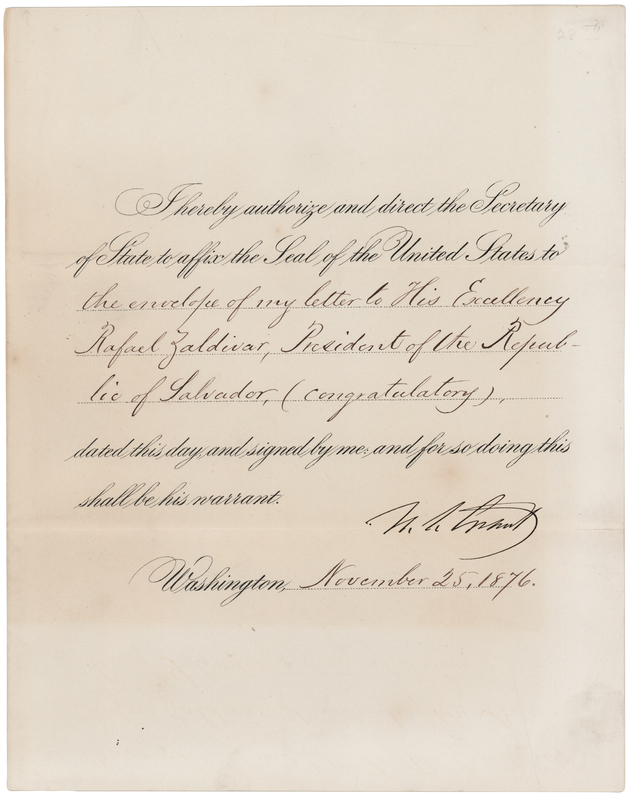 I hereby authorize and direct the Secretary
of State to affix the Seal of the United States to
the envelope of my letter to His Excellency
Rafael Zaldivar, President of the Repub-
lic of Salvador, (congratulatory),
dated this day, and signed by me: and for so doing this
shall be his warrant.
U. S. Grant
Washington, November 25, 1876.